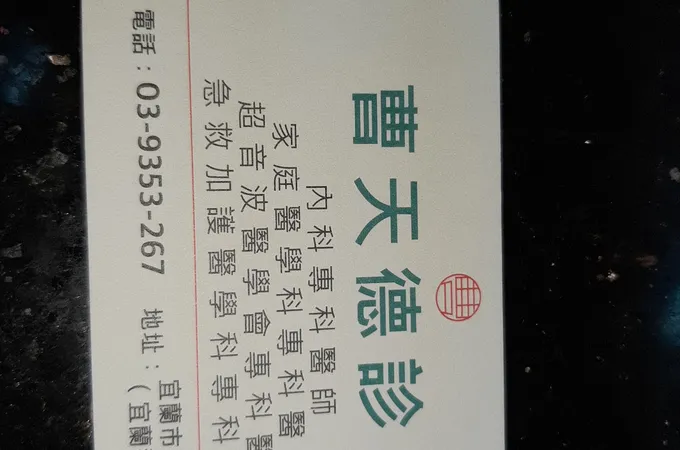 曹天德診
內科專科醫師
家庭醫學科專科醫
超音波醫學會專科醫
急救加護醫學科專科
電話：03-9353-267 地址：宜蘭市
（宜蘭